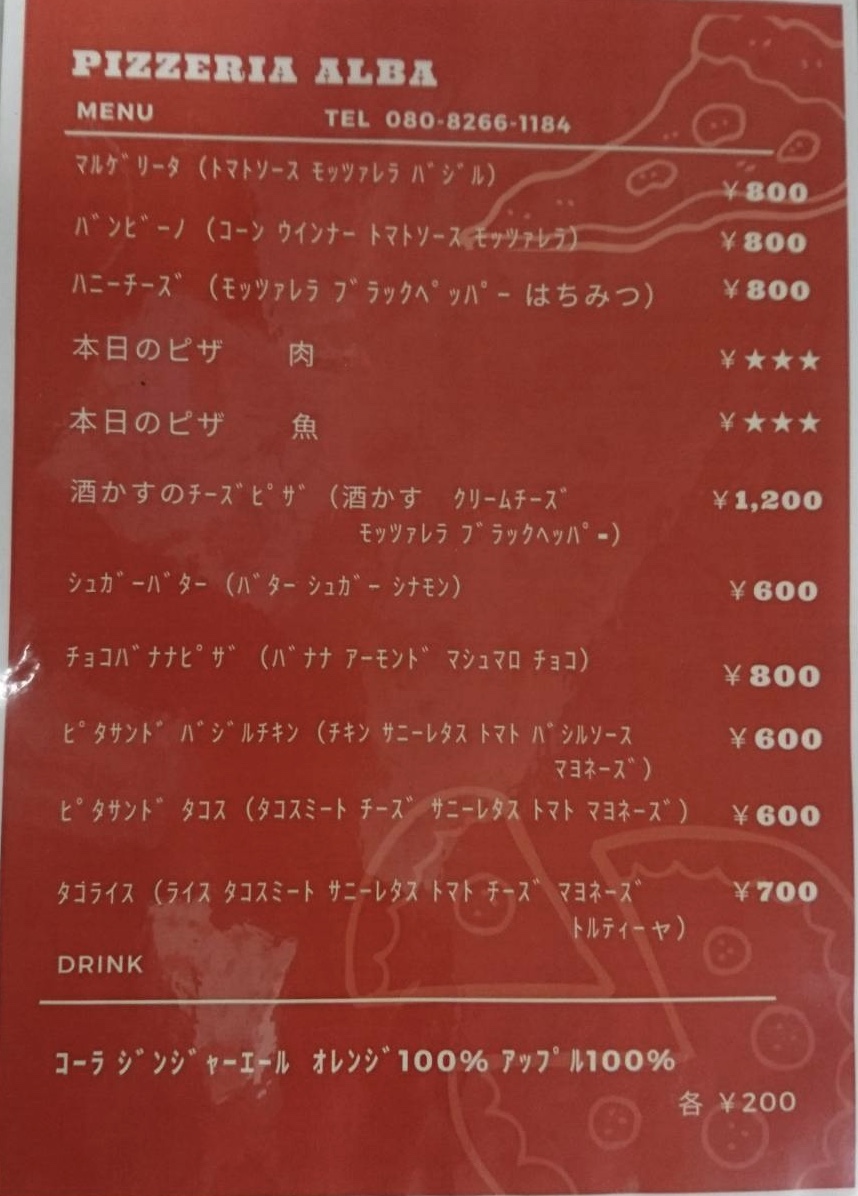 PIZZERIA ALBA
MENU TEL 080-8266-1184
マルゲリータ（トマトソース モッツァレラ バジル） ¥800
バンビーノ（コーン ウインナー トマトソース モッツァレラ） ¥800
ハニーチーズ（モッツァレラ ブラックペッパー はちみつ） ¥800
本日のピザ 肉 ¥★★★
本日のピザ 魚 ¥★★★
酒かすのチーズピザ（酒かす クリームチーズ ¥1,200
モッツァレラ ブラックヘッパー）
シュガーバター（バター シュガー シナモン） ¥600
チョコバナナピザ（バナナ アーモンド マシュマロ チョコ） ¥800
ピタサンド バジルチキン（チキン サニーレタス トマト バシルソース ¥600
マヨネーズ）
ピタサンド タコス（タコスミート チーズ サニーレタス トマト マヨネーズ） ¥600
タゴライス（ライス タコスミート サニーレタス トマト チーズ マヨネーズ ¥700
トルティーヤ）
DRINK
コーラ ジンジャーエール オレンジ100% アップル100%
各 ¥200